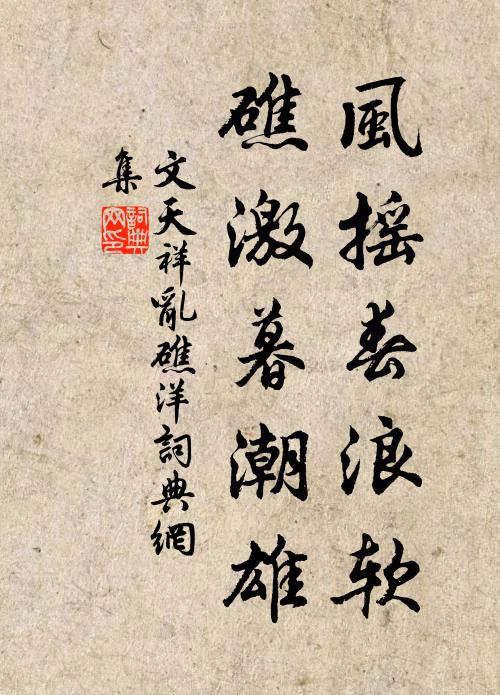 風搖春浪軟
礁激暮潮雄
文天祥亂礁洋詞典網
集
詞典
网印